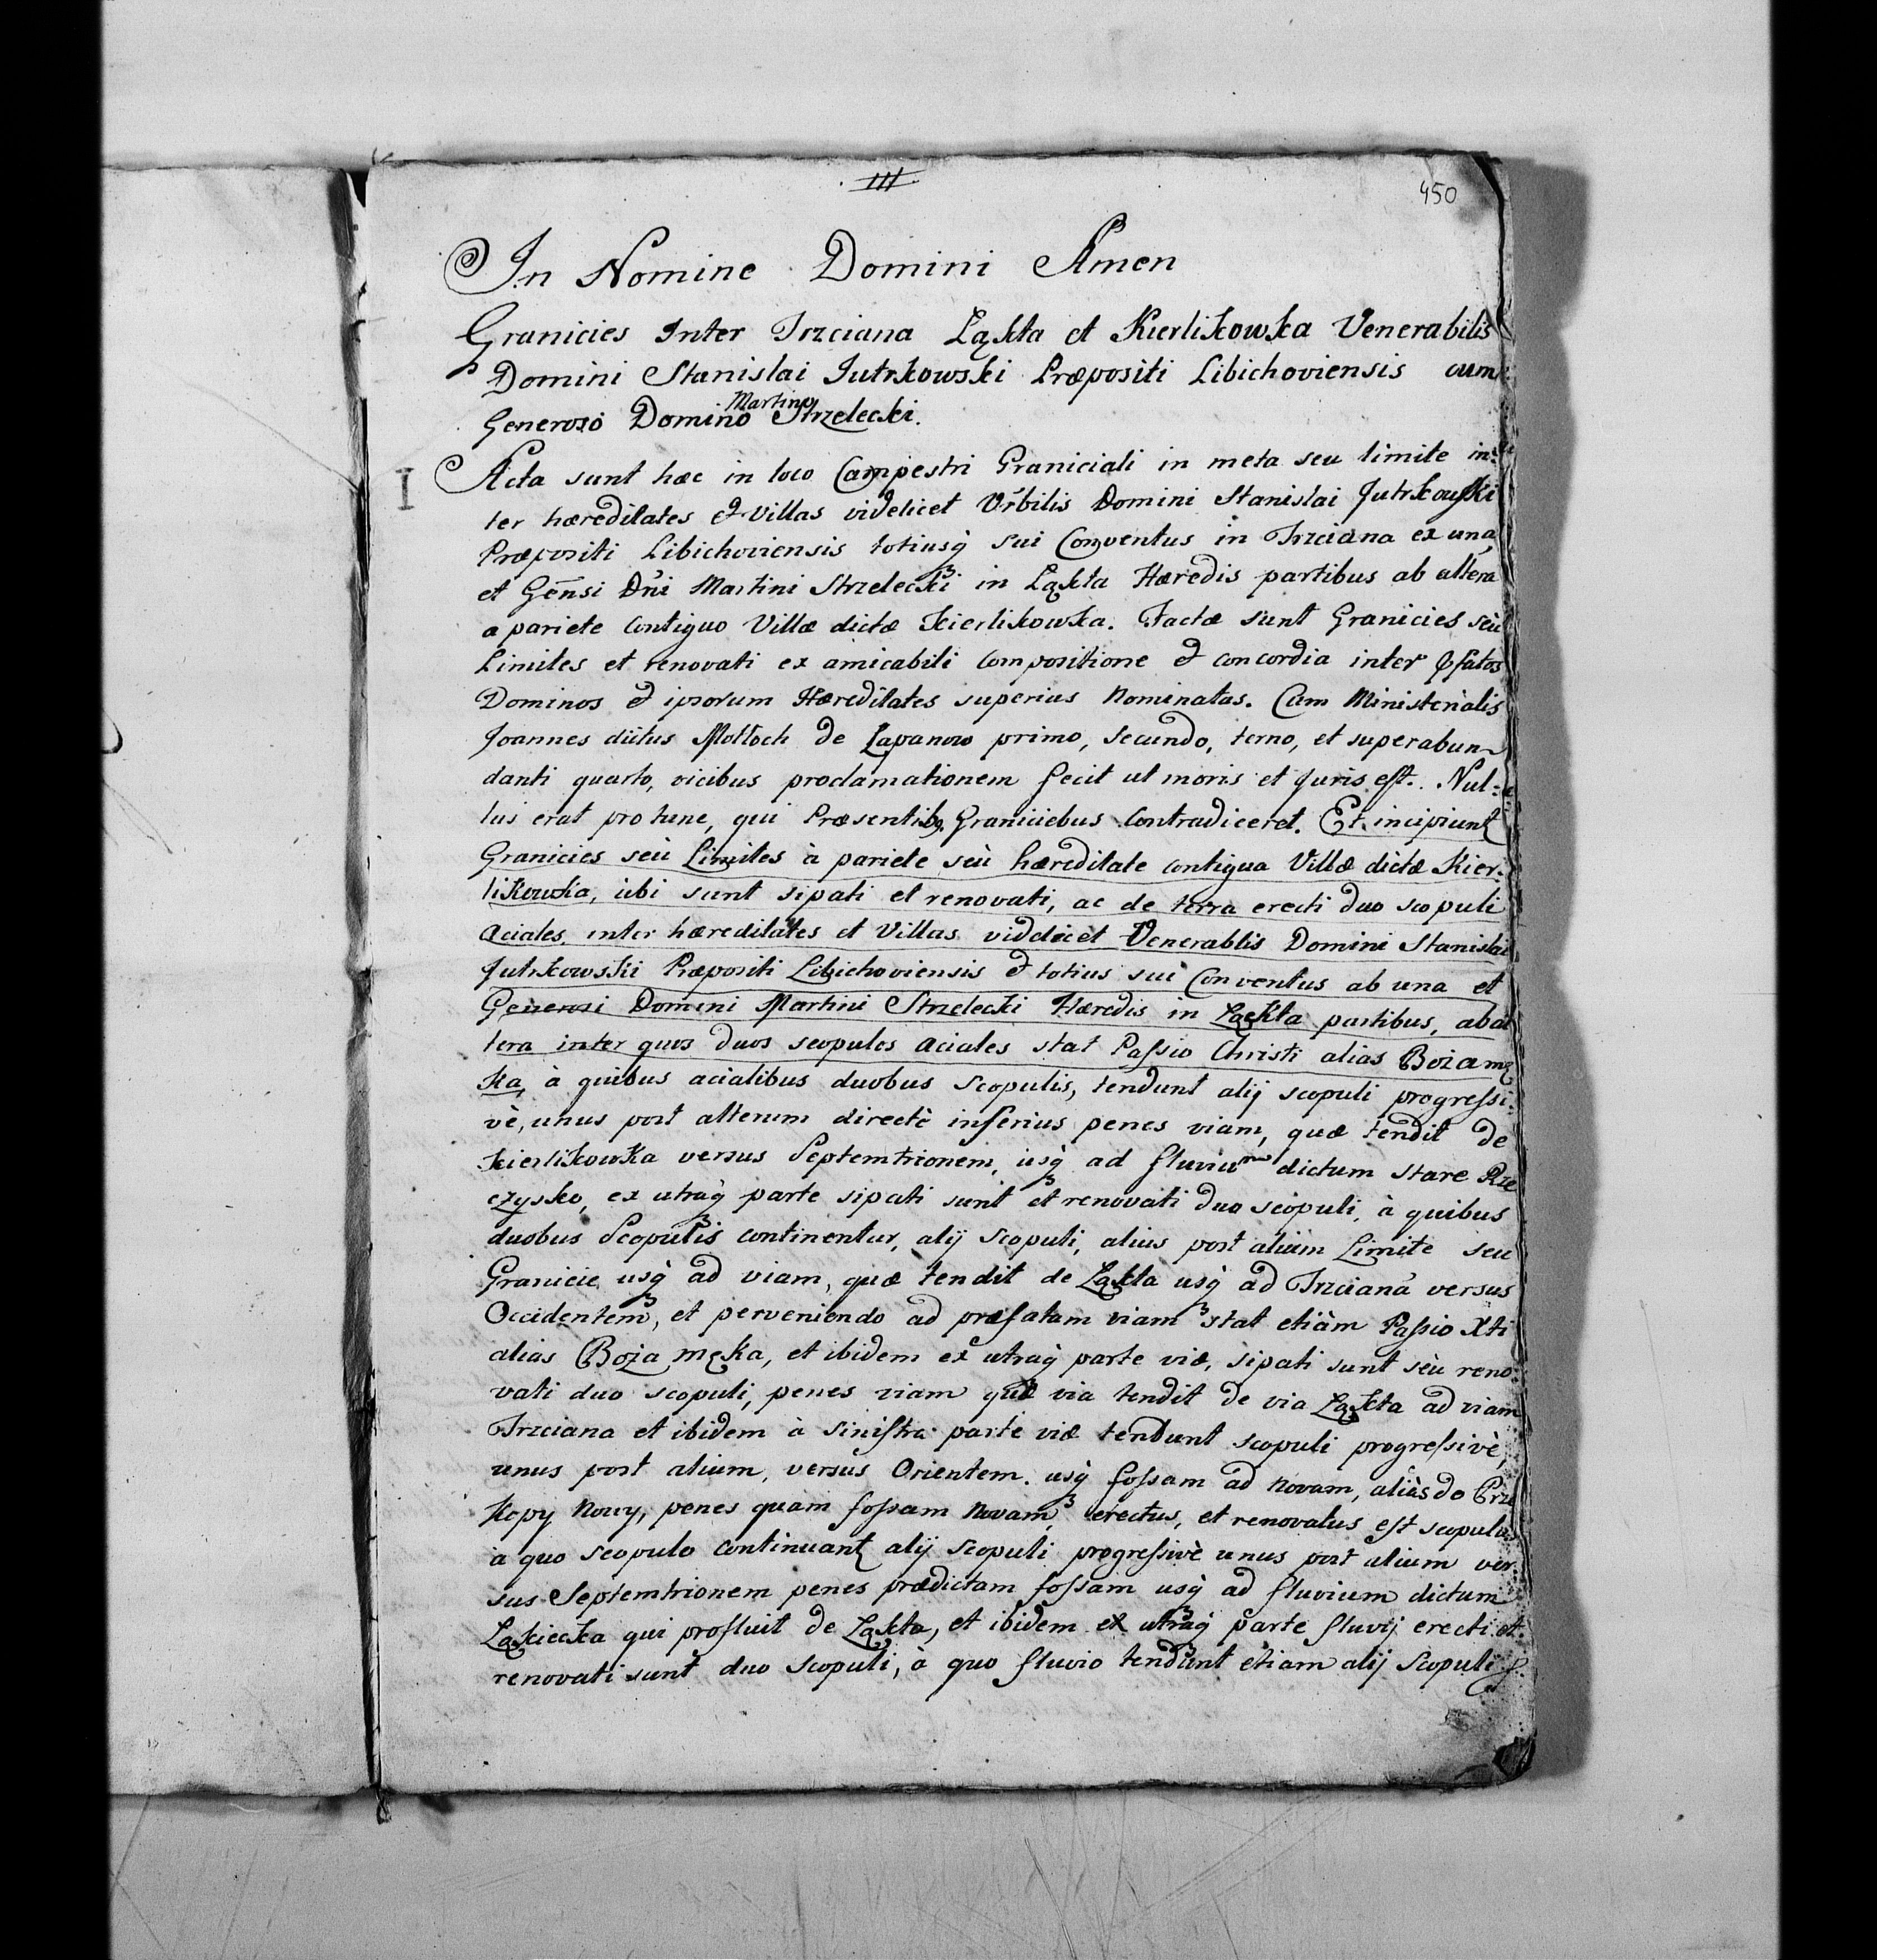 III
450
In Nomine Domini Amen
Granicies Inter Trzciana Łąkta et Kierlikowka Venerabilis
Domini Stanislai Jutrkowski Præpositi Libichoviensis cum
Generoso Domino Martino Strzelecki.
I Acta sunt hæc in loco Campestri Graniciali in meta seu limite in-
ter hæreditates et Villas videlicet Vrbilis Domini Stanislai Jutrkowski
Præpositi Libichoviensis totiusq3 sui Conventus in Trzciana ex una,
et Gensi Dni Martini Strzelecki in Łąkta Hæredis partibus ab altera
a pariete contiguo Villæ dictæ Kierlikowka. Factæ sunt Granicies seù
Limites et renovati ex amicabili compositione et concordia inter pfatos
Dominos et ipsorum Hæreditates superius Nominatas. Cum Ministerialis
Joannes dictus Mołłoch de Łapanow primo, secundo, terno, et superabun-
danti quarto, vicibus proclamationem fecit ut moris et Juris est. Nul-
lus erat pro tunc, qui Præsentib9 Graniciebus Contradiceret. Et incipiunt
Granicies seù Limites à pariete seù hæreditate contigua Villæ dictæ Kier-
likowka, ubi sunt sipati et renovati, ac de terra erecti duo scopuli
aciales inter hæreditates et Villas videlicet Venerablis Domini Stanislai
Jutrkowski Præpositi Libichoviensis et totius sui Conventus ab una et
Generosi Domini Martini Strzelecki Hæredis in Łąkta partibus, ab al
tera inter quos duos scopulos aciales stat Passio Christi alias Boza mę
ka, à quibus acialibus duobus scopulis, tendunt alij scopuli progressi-
vè, unus post alterum directè inferius penes viam, quæ tendit de
Kierlikowka versus Septemtrionem, usq3 ad fluvium dictum stare Rze
czysko, ex utraq3 parte sipati sunt et renovati duo scopuli, à quibus
duobus Scopulis continentur, alij scopuli, alius post alium Limite seu
Granicie usq3 ad viam, quæ tendit de Łąkta usq3 ad Trzciana versus
Occidentem, et perveniendo ad præfatam viam stat etiàm Passio Xti
alias Boża męka, et ibidem ex utraq3 parte viæ, sipati sunt sèu reno-
vati duo scopuli, penes viam quæ via tendit de via Łąkta ad viam
Trzciana et ibidem à sinistra parte viæ tendunt scopuli progressivè,
unus post alium, versus Orientem. usq3 fossam ad novam, aliàs do Prze
kopy Nowy, penes quam fossam Novam, erectus, et renovatus est scopulus
à quo scopulo continuant alij scopuli progressivè unus post alium ver-
sus Septemtrionem penes prædictam fossam usq3 ad fluvium dictum
Łąkiecka qui profluit de Łąkta, et ibidem ex utraq3 parte fluvij erecti et
renovati sunt duo scopuli, à quo fluvio tendunt etiam alij Scopuli